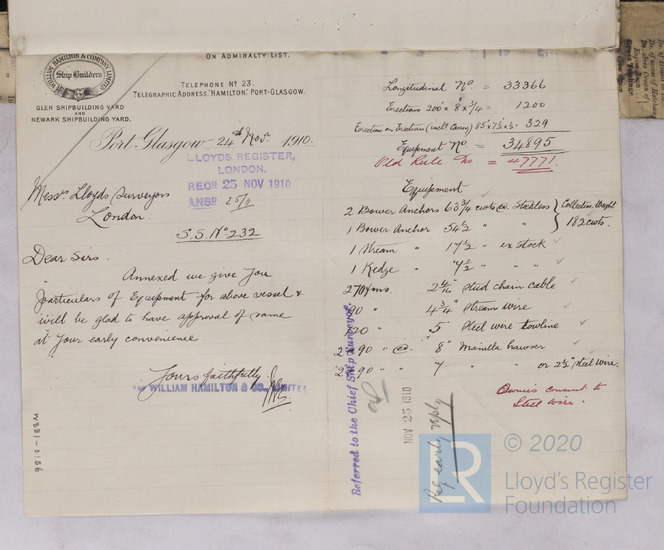 ON ADMIRALTY LIST.
WILLIAM HAMILTON & COMPANY LIMITED
Ship Builders
GLEN SHIPBUILDING YARD
AND
NEWARK SHIPBUILDING YARD.
TELEPHONE No 23.
TELEGRAPHIC ADDRESS "HAMILTON," PORT-GLASGOW.
Port-Glasgow 24th Nov. 1910.
LLOYDS REGISTER,
LONDON.
RECD 25 NOV 1910
ANSD 25/11
Messrs Lloyds Surveyors
London.
S.S. No 232
Dear Sirs.
Annexed we give you
particulars of Equipment for above vessel &
will be glad to have approval of same
at your early convenience
Yours faithfully
WILLIAM HAMILTON & CO. LIMITED
W881-0186
Longitudinal No. = 33366
Erections 200' x 8' x 3/4 = 1200
Erection on Erection (incl. Casing) = 329
Equipment No. = 34895
Old Rule No. = 47771.
Equipment
2 Bower Anchors 63 3/4 cwts @. Stockless
1 Bower Anchor 54 1/2 " "
Collective Weight
182 cwts.
1 Stream " 17 1/2 " ex stock
1 Kedge " 7 1/2 " " "
270 fms 2 4/16 Stud chain cable
90 " 4 3/4" Stream wire
120 " 5" Steel wire towline
2 @ 90 " @ 8" Manilla hawser
90 " 7 " " or 2 1/2" steel wire.
Owners consent to
Steel wire.
Referred to the Chief Ship Surveyor.
NOV 25 1910
Req early reply
LR
© 2020
Lloyd's Register
Foundation